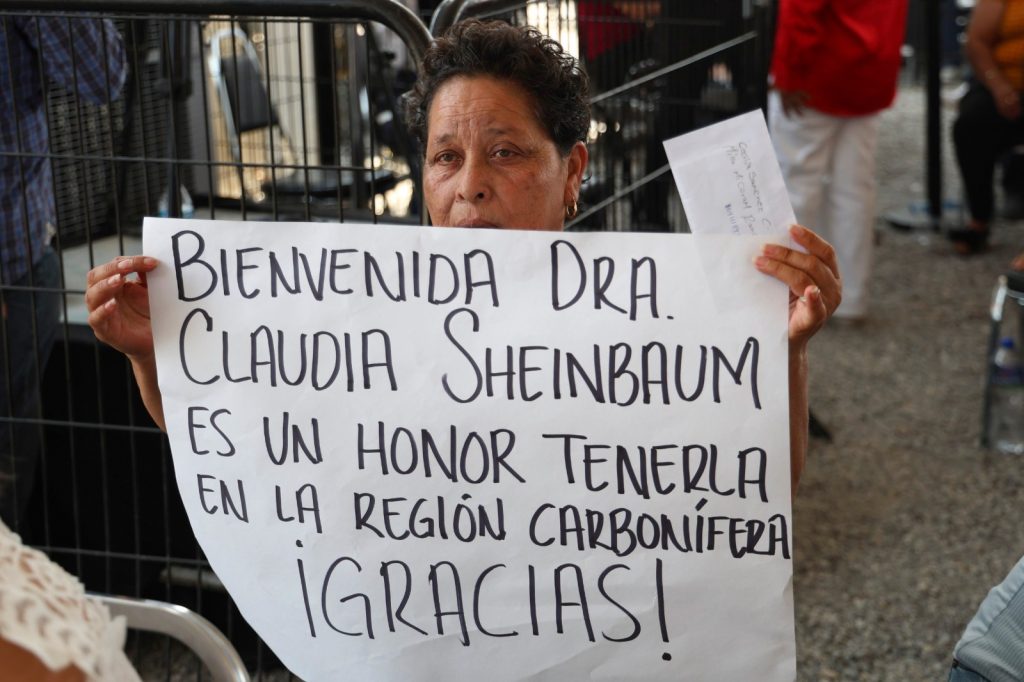 BIENVENIDA DRA.
CLAUDIA SHEINBAUM
ES UN HONOR TENERLA
EN LA REGIÓN CARBONÍFERA
¡GRACIAS!